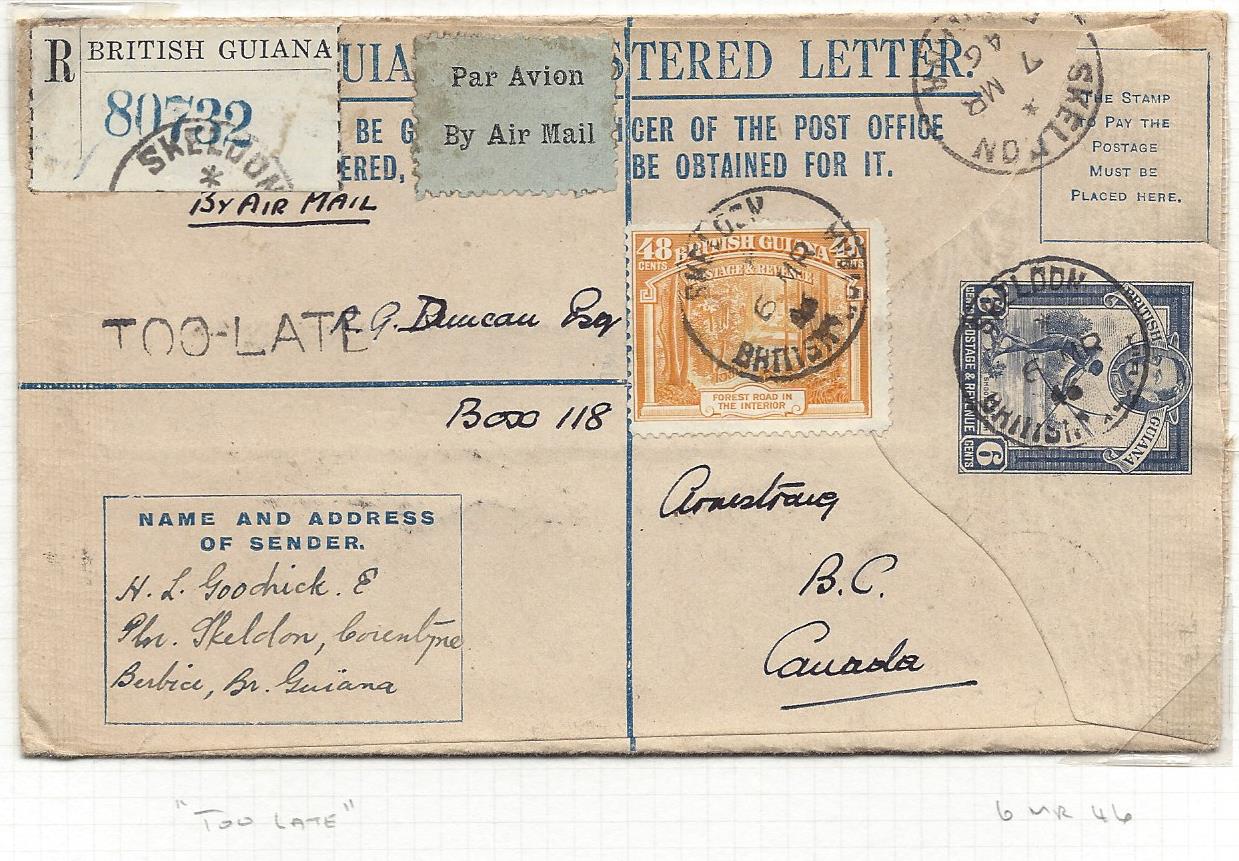 R BRITISH GUIANA
80732
SKELDON
*
UIA
STERED LETTER.
Par Avion
By Air Mail
BE G
ICER OF THE POST OFFICE
ERED,
BE OBTAINED FOR IT.
SKELDON
7 MR
46
*
THE STAMP
TO PAY THE
POSTAGE
MUST BE
PLACED HERE.
BY AIR MAIL
48 BRITISH GUIANA 48
CENTS POSTAGE & REVENUE CENTS
FOREST ROAD IN
THE INTERIOR
SKELDON
6 MR
BRITISH
BRITISH
GUIANA
6
CENTS POSTAGE & REVENUE CENTS
6
SKELDON
6
46
BRITISH
TOO-LATE
R. G. Duncan Esq
Box 118
Armstrong
B.C.
Canada
NAME AND ADDRESS
OF SENDER.
H. L. Goodrick. E
Pln. Skeldon, Corentyne
Berbice, Br. Guiana
"TOO LATE"
6 MR 46